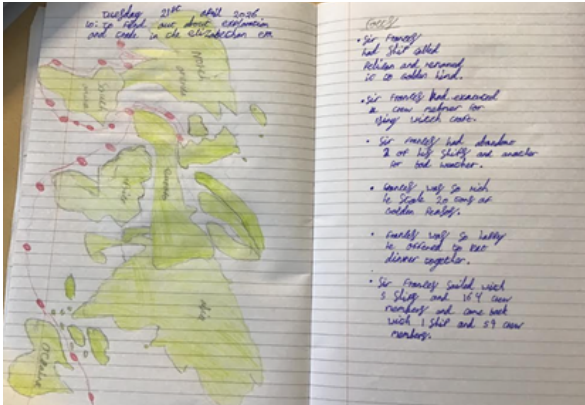 Tuesday 21st april 2026
L.O: To find out about exploration
and trade in the elizabethan era
North
america
South
america
Africa
Europe
Asia
Oceania
Facts
• Sir Frances
had ship called
Pelican and renamed
it to Golden hind.
• Sir Frances had executed
a crew member for
using witch craft.
• Sir Frances had abandon
2 of his ships and another
for bad weather.
• Frances was so rich
he stole 20 tons of
Golden
• Frances was so happy
he offered to
dinner together.
• Sir Frances sailed with
5 ships and 164 crew
members and came back
with 1 ship and 59 crew
members.